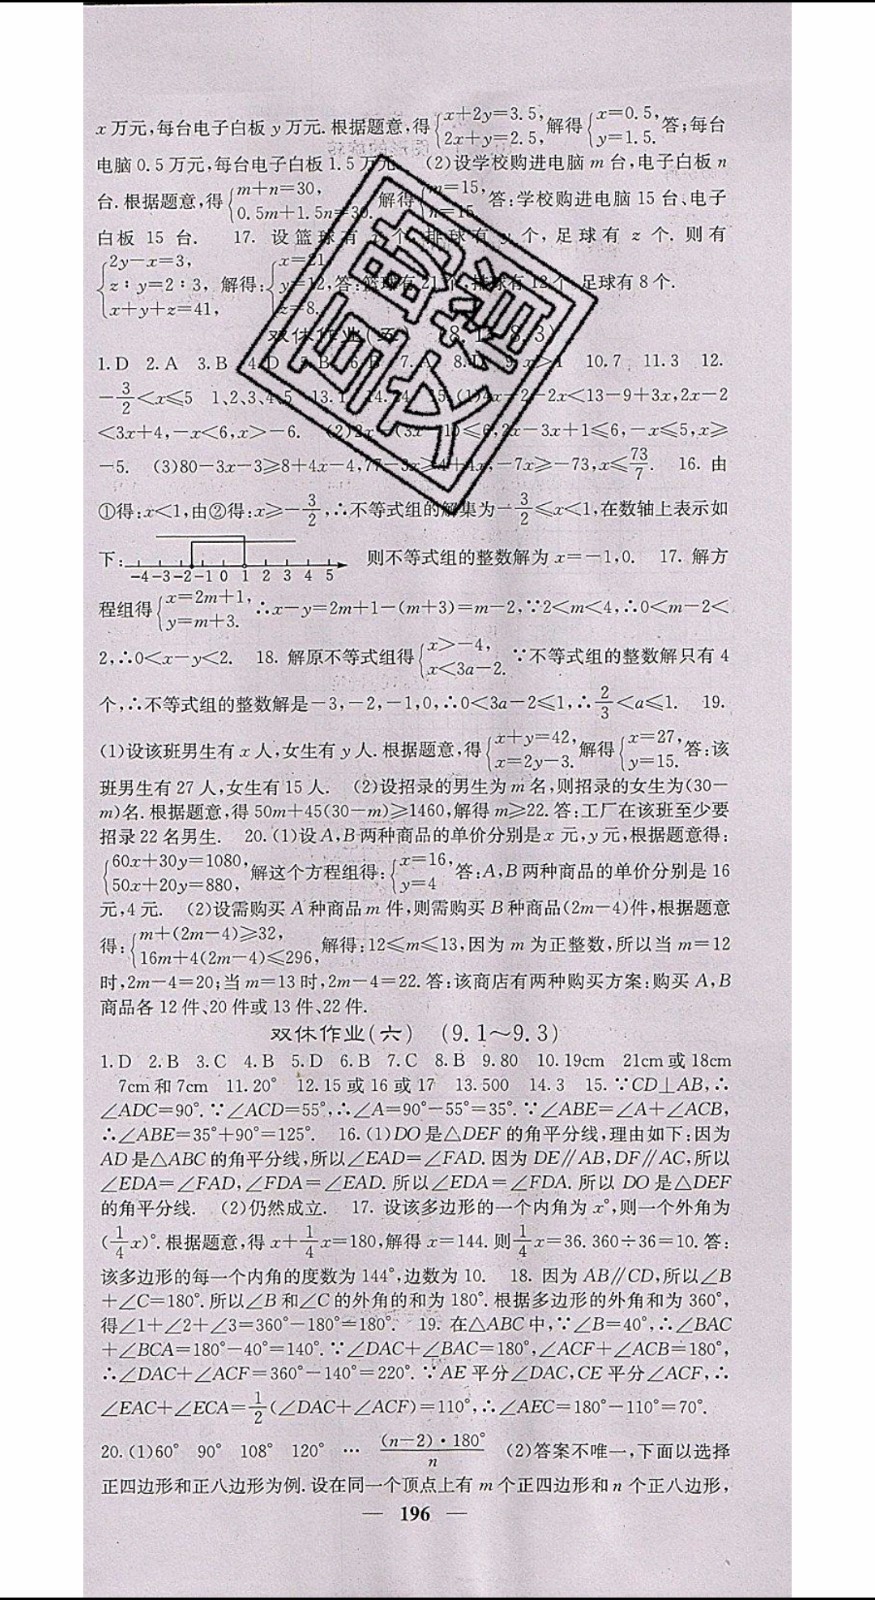 x万元,每台电子白板y万元.根据题意,得{x+2y=3.5, 2x+y=2.5, 解得{x=0.5, y=1.5. 答:每台
电脑0.5万元,每台电子白板1.5万元. (2)设学校购进电脑m台,电子白板n
台.根据题意,得{m+n=30, 0.5m+1.5n=30. 解得{m=15, n=15. 答:学校购进电脑15台、电子
白板15台. 17. 设篮球有 个,排球有y个,足球有z个.则有
{2y-x=3, z:y=2:3, x+y+z=41, 解得:{x=21, y=12, z=8. 答:篮球有21个,排球有12个,足球有8个.
双休作业(五) (8.1~8.3)
1.D 2.A 3.B 4.D 5.B 6.B 7.A 8. 9. 10.7 11.3 12.
-3/2<x≤5 1、2、3、4、5 13.1 14. 15.(1)4x-2-2x<13-9+3x,2x-2
<3x+4,-x<6,x>-6. (2)2x-(3x-1)≤6,2x-3x+1≤6,-x≤5,x≥
-5. (3)80-3x-3≥8+4x-4,77-3x≥4+4x,-7x≥-73,x≤73/7. 16. 由
①得:x<1,由②得:x≥-3/2,∴不等式组的解集为-3/2≤x<1,在数轴上表示如
下: -4 -3 -2 -1 0 1 2 3 4 5 则不等式组的整数解为x=-1,0. 17. 解方
程组得{x=2m+1, y=m+3. ∴x-y=2m+1-(m+3)=m-2,∵2<m<4,∴0<m-2<
2,∴0<x-y<2. 18. 解原不等式组得{x>-4, x<3a-2. ∵不等式组的整数解只有4
个,∴不等式组的整数解是-3,-2,-1,0,∴0<3a-2≤1,∴2/3<a≤1. 19.
(1)设该班男生有x人,女生有y人.根据题意,得{x+y=42, x=2y-3. 解得{x=27, y=15. 答:该
班男生有27人,女生有15人. (2)设招录的男生为m名,则招录的女生为(30-
m)名.根据题意,得50m+45(30-m)≥1460,解得m≥22.答:工厂在该班至少要
招录22名男生. 20.(1)设A,B两种商品的单价分别是x元,y元,根据题意得:
{60x+30y=1080, 50x+20y=880, 解这个方程组得:{x=16, y=4 答:A,B两种商品的单价分别是16
元,4元. (2)设需购买A种商品m件,则需购买B种商品(2m-4)件,根据题意
得:{m+(2m-4)≥32, 16m+4(2m-4)≤296, 解得:12≤m≤13,因为m为正整数,所以当m=12
时,2m-4=20;当m=13时,2m-4=22.答:该商店有两种购买方案:购买A,B
商品各12件、20件或13件、22件.
双休作业(六) (9.1~9.3)
1.D 2.B 3.C 4.B 5.D 6.B 7.C 8.B 9.80 10.19cm 21cm或18cm
7cm和7cm 11.20° 12.15或16或17 13.500 14.3 15.∵CD⊥AB,∴
∠ADC=90°.∵∠ACD=55°,∴∠A=90°-55°=35°.∵∠ABE=∠A+∠ACB,
∴∠ABE=35°+90°=125°. 16.(1)DO是△DEF的角平分线,理由如下:因为
AD是△ABC的角平分线,所以∠EAD=∠FAD.因为DE∥AB,DF∥AC,所以
∠EDA=∠FAD,∠FDA=∠EAD.所以∠EDA=∠FDA.所以DO是△DEF
的角平分线. (2)仍然成立. 17. 设该多边形的一个内角为x°,则一个外角为
(1/4x)°.根据题意,得x+1/4x=180,解得x=144.则1/4x=36.360÷36=10.答:
该多边形的每一个内角的度数为144°,边数为10. 18. 因为AB∥CD,所以∠B
+∠C=180°.所以∠B和∠C的外角的和为180°.根据多边形的外角和为360°,
得∠1+∠2+∠3=360°-180°=180°. 19. 在△ABC中,∵∠B=40°,∴∠BAC
+∠BCA=180°-40°=140°.∵∠DAC+∠BAC=180°,∠ACF+∠ACB=180°,
∴∠DAC+∠ACF=360°-140°=220°.∵AE平分∠DAC,CE平分∠ACF,∴
∠EAC+∠ECA=1/2(∠DAC+∠ACF)=110°,∴∠AEC=180°-110°=70°.
20.(1)60° 90° 108° 120° … (n-2)·180°/n (2)答案不唯一,下面以选择
正四边形和正八边形为例.设在同一个顶点上有m个正四边形和n个正八边形,
— 196 —